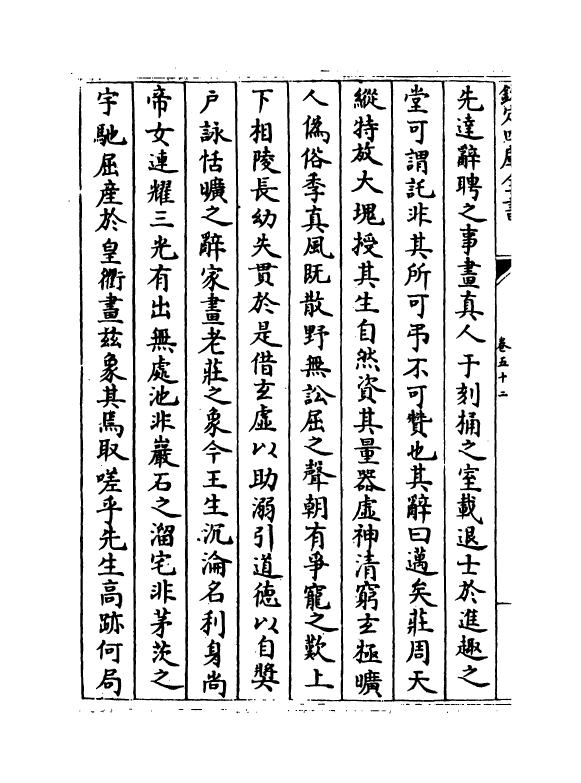 欽定四庫全書
卷五十二
先達辭聘之事畫真人于刻桷之室載退士於進趣之
堂可謂託非其所可弔不可贊也其辭曰邁矣莊周天
縱特放大塊授其生自然資其量器虛神清窮玄極曠
人偽俗季真風既散野無訟屈之聲朝有爭寵之歎上
下相陵長幼失貫於是借玄虛以助溺引道德以自奬
户詠恬曠之辭家畫老莊之象今王生沉淪名利身尚
帝女連耀三光有出無處池非巖石之溜宅非茅茨之
宇馳屈産於皇衢畫兹象其焉取嗟乎先生高跡何局